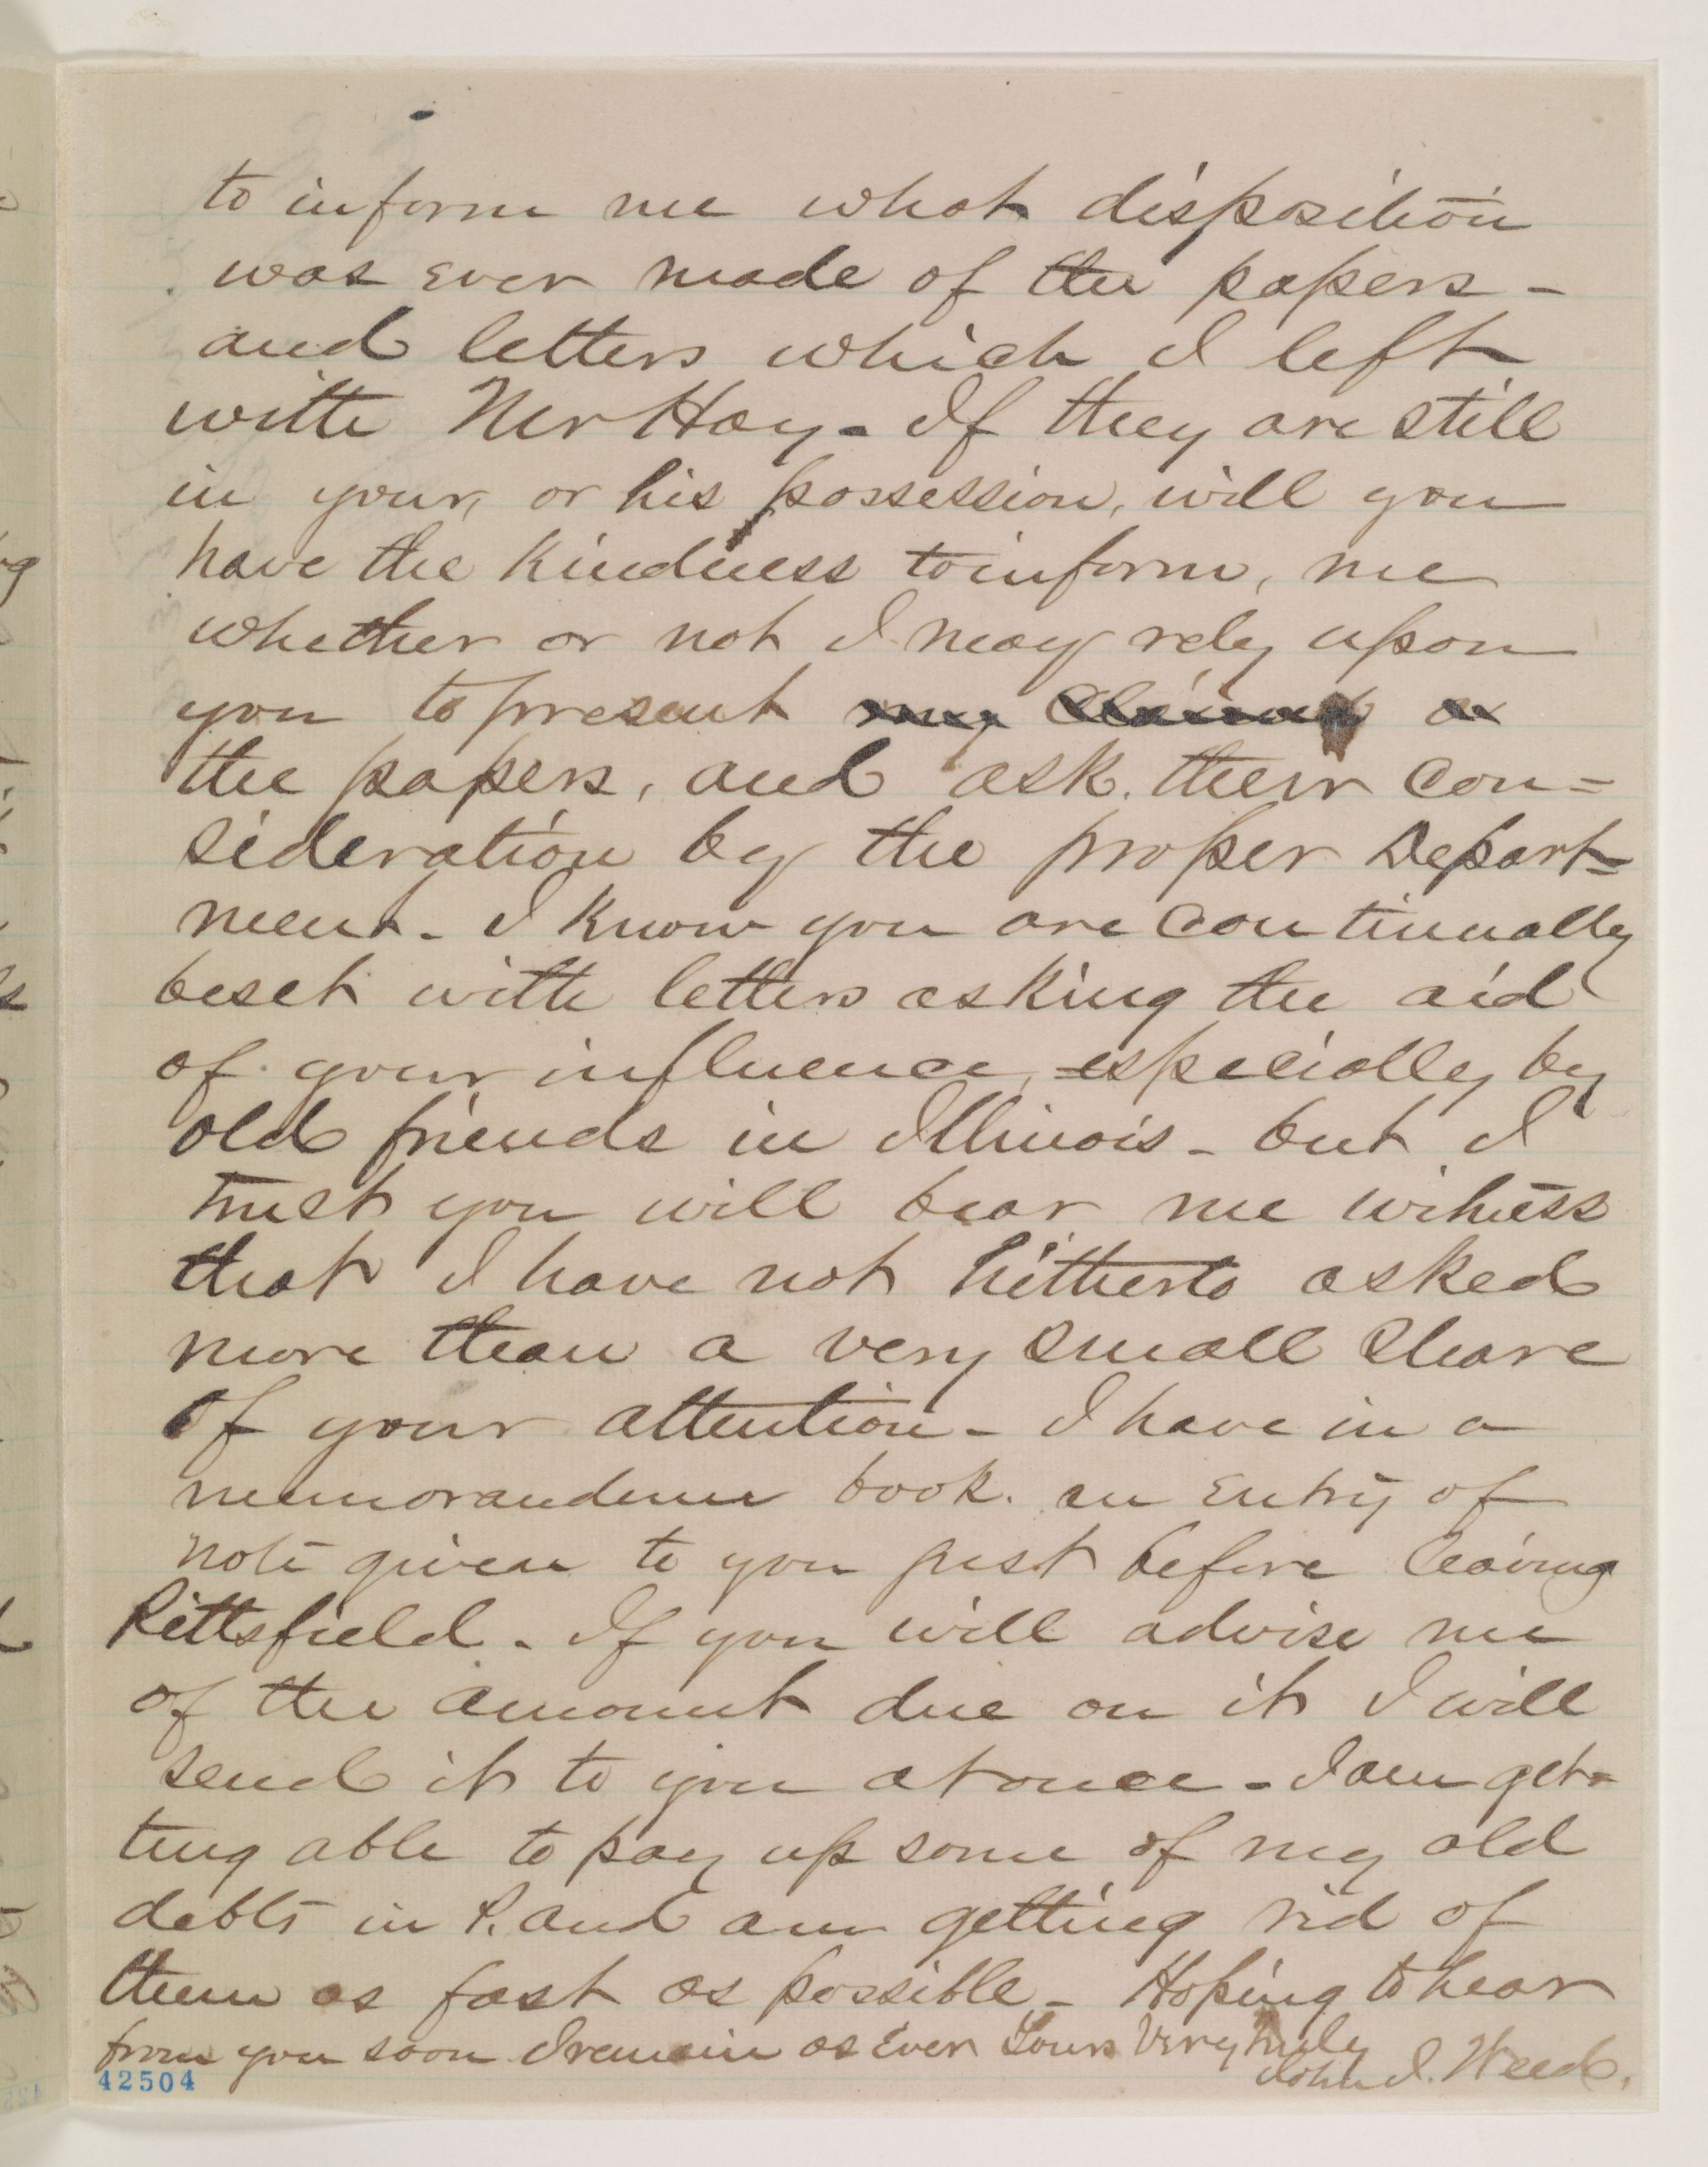 to inform me what disposition
was ever made of the papers -
and letters which I left
with Mr Hay - If they are still
in your, or his possession, will you
have the kindness to inform, me
whether or not I may rely upon
you to present my claims or
the papers, and ask their con=
sideration by the proper Depart=
ment - I know you are continually
beset with letters asking the aid
of your influence, especially by
old friends in Illinois - but I
trust you will bear me witness
that I have not hitherto asked
more than a very small share
of your attention - I have in a
memorandum book. an entry of
note given to you just before leaving
Pittsfield - If you will advise me
of the amount due on it I will
send it to you at once - I am get=
ting able to pay up some of my old
debts in P. and am getting rid of
them as fast as possible - Hoping to hear
from you soon I remain as Ever Yours Very truly
John I. Weed.
42504